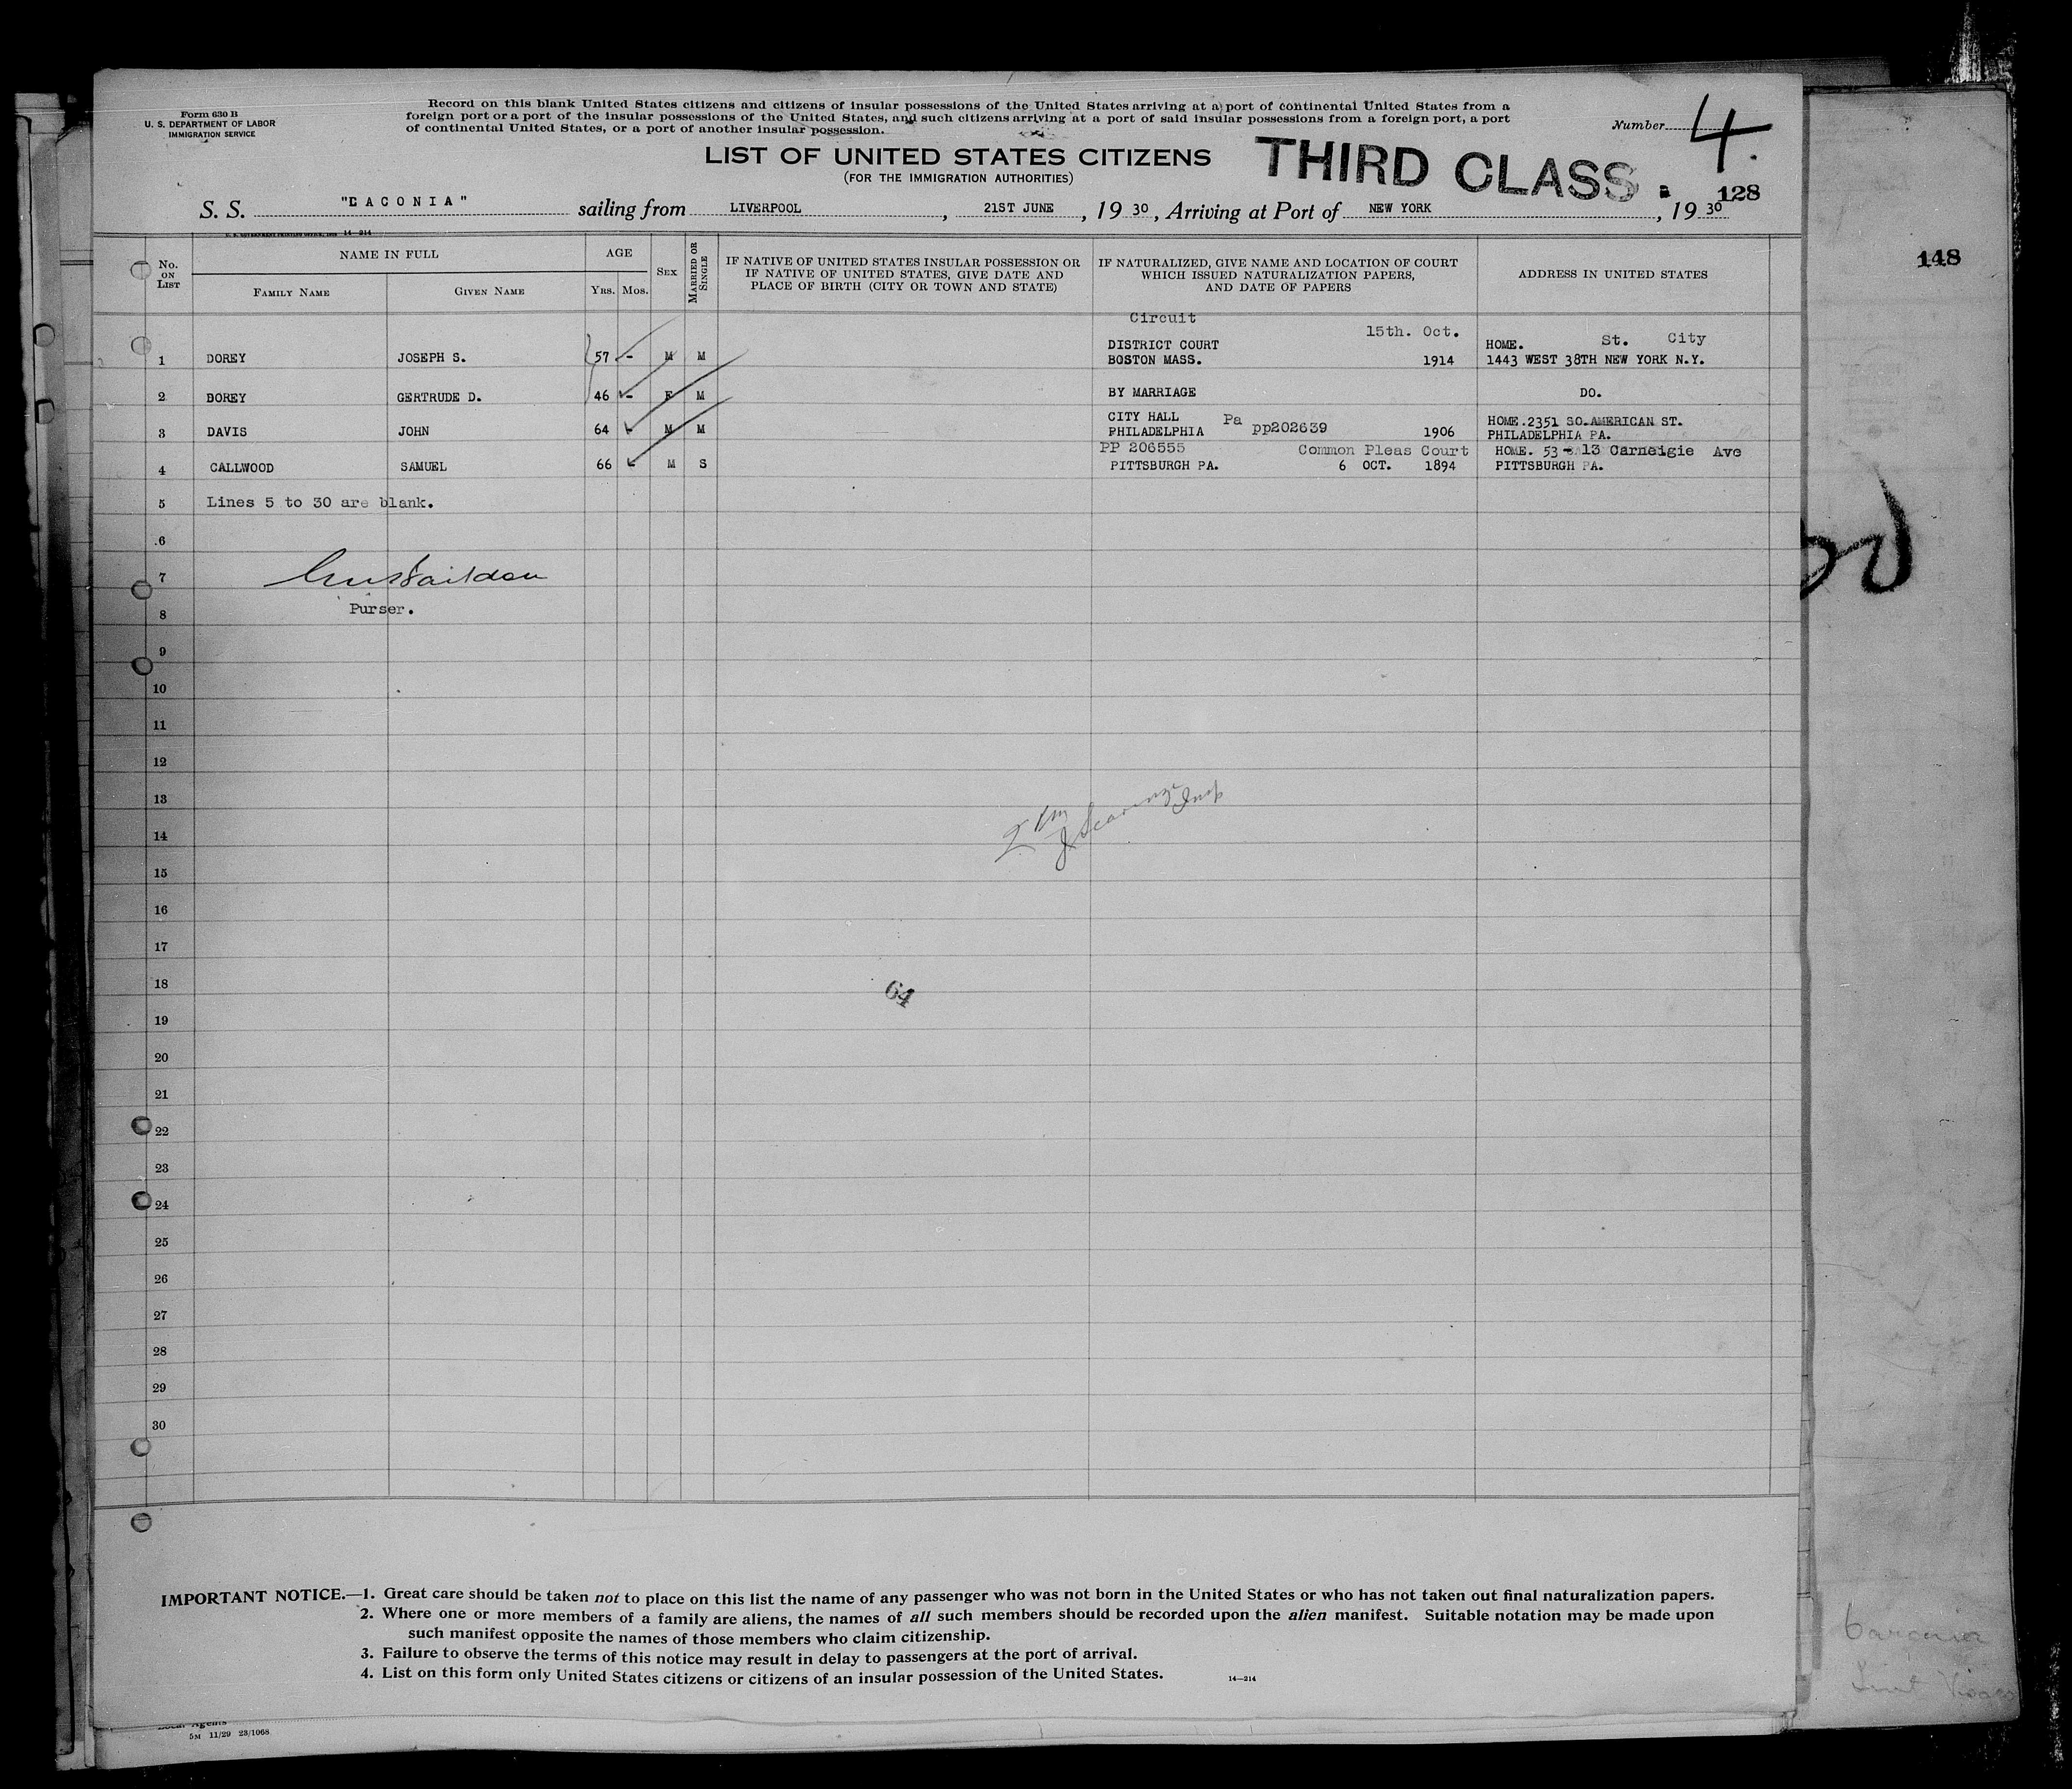 Form 630 B
U. S. DEPARTMENT OF LABOR
IMMIGRATION SERVICE
Record on this blank United States citizens and citizens of insular possessions of the United States arriving at a port of continental United States from a
foreign port or a port of the insular possessions of the United States, and such citizens arriving at a port of said insular possessions from a foreign port, a port
of continental United States, or a port of another insular possession.
Number 4.
LIST OF UNITED STATES CITIZENS
(FOR THE IMMIGRATION AUTHORITIES)
THIRD CLASS
128
148
S. S. "LACONIA" sailing from LIVERPOOL, 21ST JUNE, 19 30, Arriving at Port of NEW YORK, 19 30
14-214
No. ON LIST
NAME IN FULL
FAMILY NAME
GIVEN NAME
AGE
YRS. MOS.
SEX
MARRIED OR SINGLE
IF NATIVE OF UNITED STATES INSULAR POSSESSION OR
IF NATIVE OF UNITED STATES, GIVE DATE AND
PLACE OF BIRTH (CITY OR TOWN AND STATE)
IF NATURALIZED, GIVE NAME AND LOCATION OF COURT
WHICH ISSUED NATURALIZATION PAPERS,
AND DATE OF PAPERS
ADDRESS IN UNITED STATES
Circuit
15th. Oct.
St. City
DISTRICT COURT HOME.
1 DOREY JOSEPH S. 57 - M M BOSTON MASS. 1914 1443 WEST 38TH NEW YORK N.Y.
2 DOREY GERTRUDE D. 46 - F M BY MARRIAGE DO.
CITY HALL Pa pp202639 HOME.2351 SO.AMERICAN ST.
3 DAVIS JOHN 64 - M M PHILADELPHIA 1906 PHILADELPHIA PA.
PP 206555 Common Pleas Court HOME. 53 - 13 Carneigie Ave
4 CALLWOOD SAMUEL 66 M S PITTSBURGH PA. 6 OCT. 1894 PITTSBURGH PA.
5 Lines 5 to 30 are blank.
6
7
Purser.
8
9
10
11
12
13
14
15
16
17
18
64
19
20
21
22
23
24
25
26
27
28
29
30
IMPORTANT NOTICE.—1. Great care should be taken not to place on this list the name of any passenger who was not born in the United States or who has not taken out final naturalization papers.
2. Where one or more members of a family are aliens, the names of all such members should be recorded upon the alien manifest. Suitable notation may be made upon
such manifest opposite the names of those members who claim citizenship.
3. Failure to observe the terms of this notice may result in delay to passengers at the port of arrival.
4. List on this form only United States citizens or citizens of an insular possession of the United States.
14—214
Local Agents
5M 11/29 23/1068